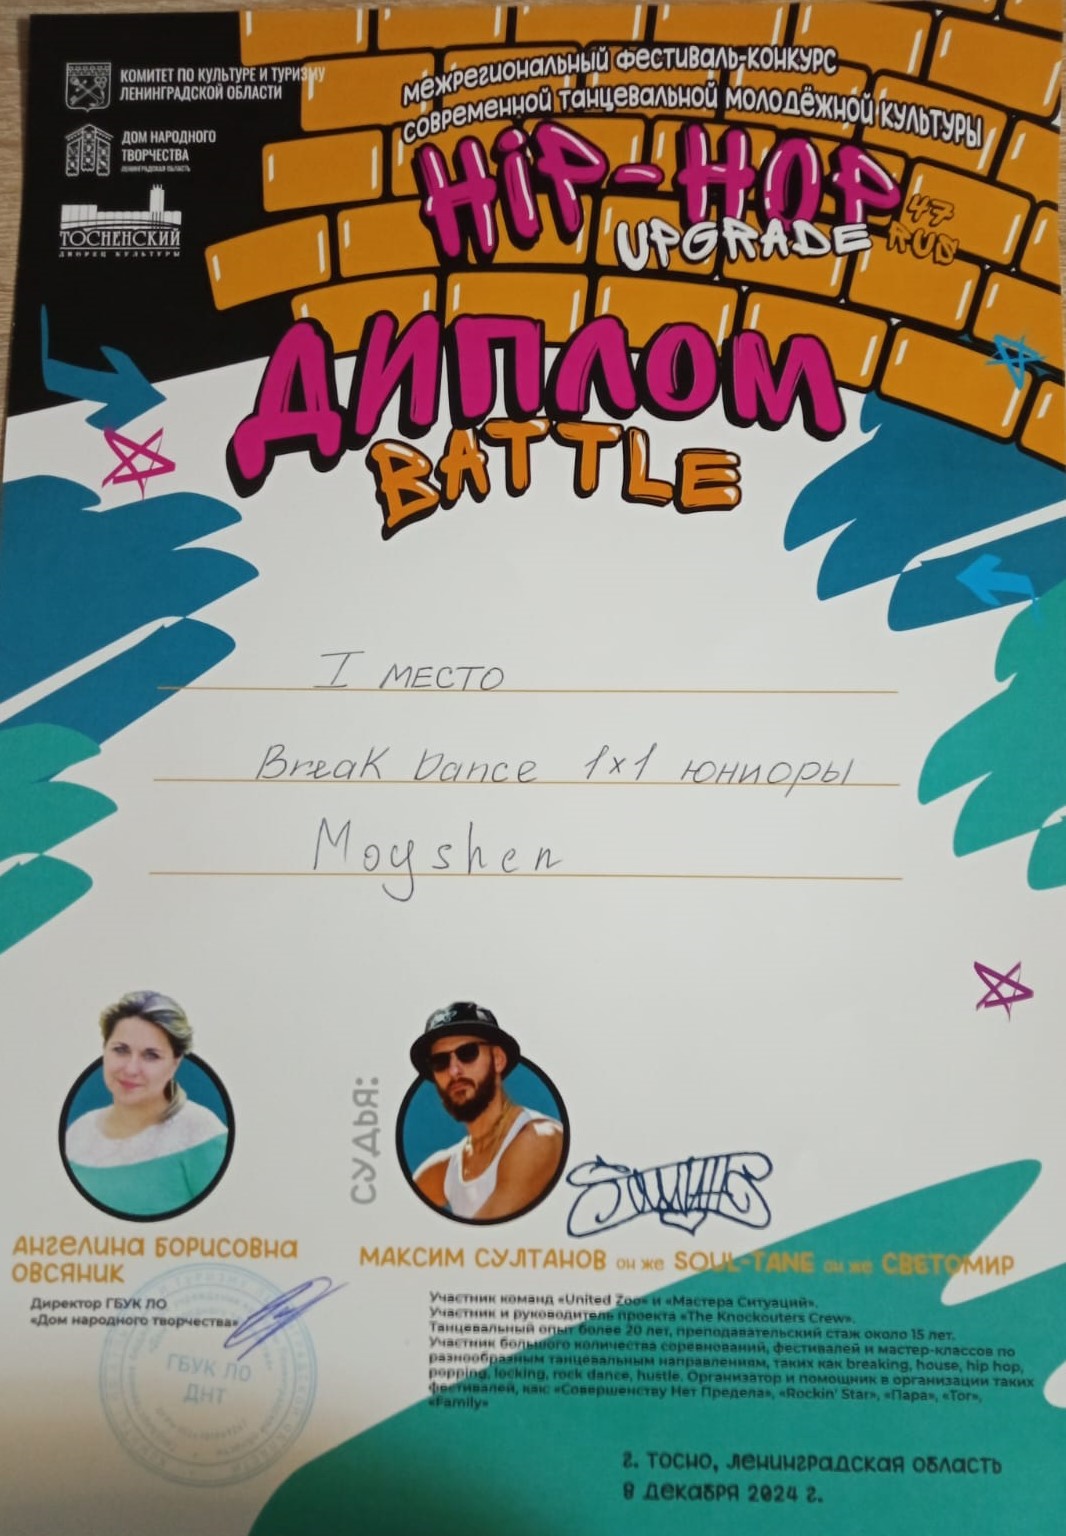 КОМИТЕТ ПО КУЛЬТУРЕ И ТУРИЗМУ
ЛЕНИНГРАДСКОЙ ОБЛАСТИ
ДОМ НАРОДНОГО
ТВОРЧЕСТВА
ЛЕНИНГРАДСКАЯ ОБЛАСТЬ
ТОСНЕНСКИЙ
ДВОРЕЦ КУЛЬТУРЫ
межрегиональный фестиваль-конкурс
современной танцевальной молодёжной культуры
HIP-HOP
UPGRADE
47
RUS
ДИПЛОМ
BATTLE
I место
Break Dance 1x1 юниоры
Moyshen
СУДЬЯ:
АНГЕЛИНА БОРИСОВНА
ОВСЯНИК
Директор ГБУК ЛО
«Дом народного творчества»
ГБУК ЛО
ДНТ
МАКСИМ СУЛТАНОВ он же SOUL-TANE он же СВЕТОМИР
Участник команд «United Zoo» и «Мастера Ситуаций».
Участник и руководитель проекта «The Knockouters Crew».
Танцевальный опыт более 20 лет, преподавательский стаж около 15 лет.
Участник большого количества соревнований, фестивалей и мастер-классов по
разнообразным танцевальным направлениям, таких как breaking, house, hip hop,
popping, locking, rock dance, hustle. Организатор и помощник в организации таких
фестивалей, как: «Совершенству Нет Предела», «Rockin' Star», «Пара», «Tor»,
«Family»
г. Тосно, Ленинградская область
8 декабря 2024 г.